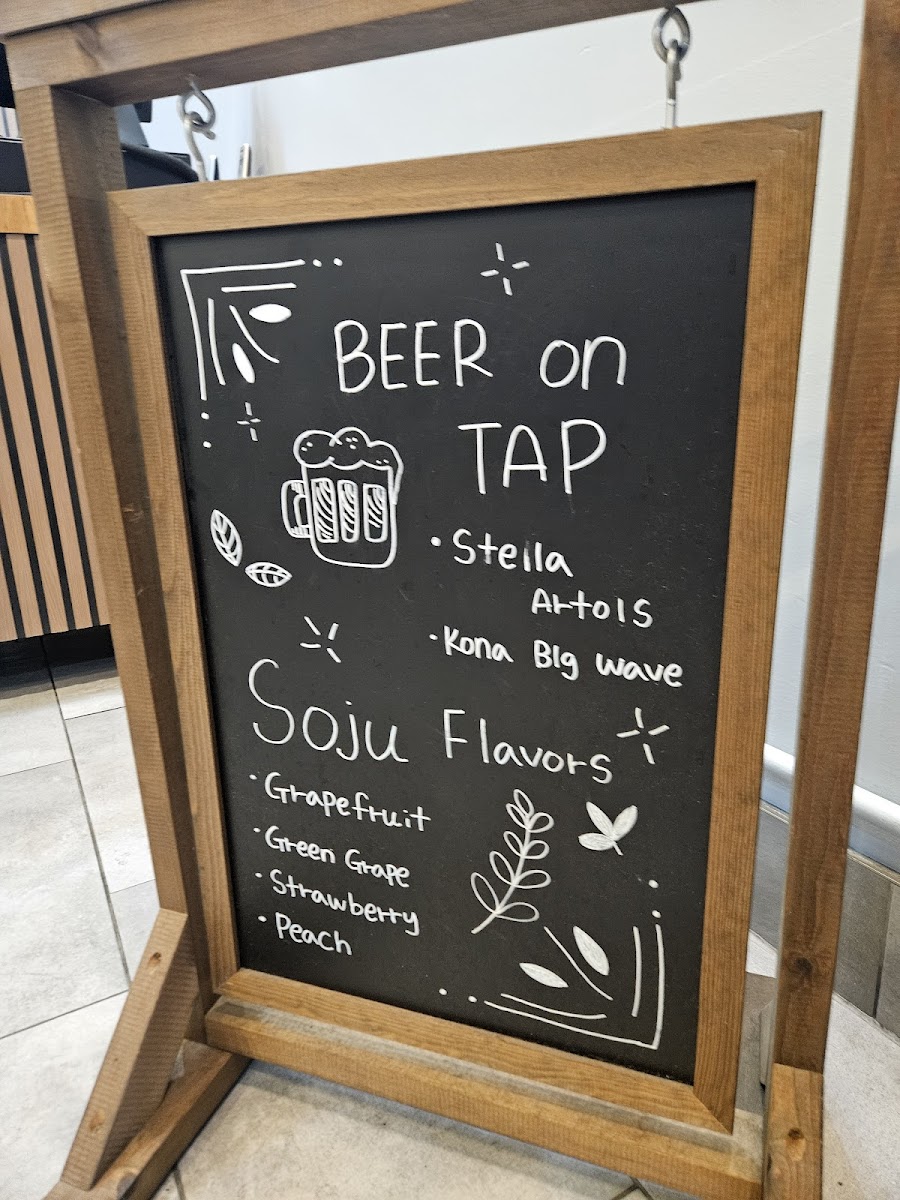 BEER on
TAP
• Stella
Artois
• Kona Big wave
Soju Flavors
• Grapefruit
• Green Grape
• Strawberry
• Peach